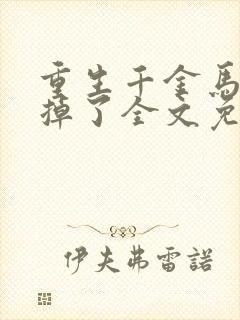 重生千金馬
掉了全文免
伊夫弗雷諾